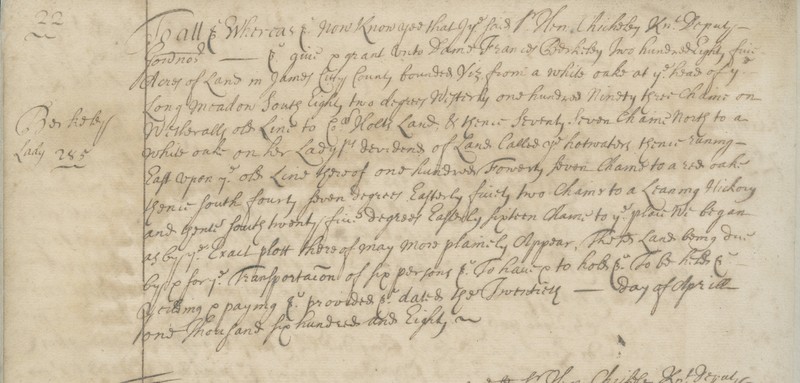 22
To all &c Whereas &c Now Know yee that I ye said Sr Hen: Chicheley Knt Deputy
Govnor — &c give & grant unto Dame Frances Berkeley two hundred Eighty five
Acres of Land in James Citty County bounded Viz from a white oake at ye head of ye
Long Meadow South Eighty two degrees Westerly one hundred Ninety three Chains on
Wetheralls old Line to Holts Land & thence Seventy Seven Chains North to a
Berkeley
Lady 285
white oake on her Ladysps devidend of Land Called ye hotwaters thence runing
East upon ye old Line thereof one hundred Fowerty Seven Chains to a red oake
thence South fourty seven degrees Easterly fivety two Chains to a Leaning Hickory
and thence South twenty five degrees Easterly sixteen Chains to ye place We began
as by ye Exact plott thereof may More plainely Appear, The sd Land being due
by & for ye Transportacon of six persons &c To have & to hold &c To be held &c
Yeilding & paying &c provided &c dated the Twentieth — day of Aprill
one thousand six hundred and Eighty ~
Sr Hen: Chicheley Knt Deputy